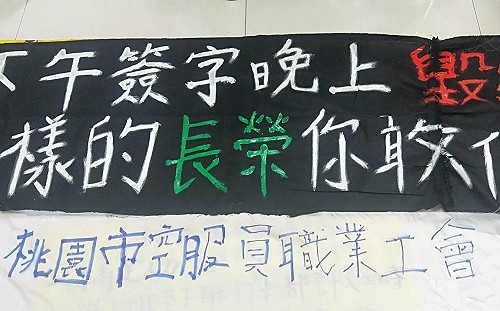 午簽字晚上毀
樣的長榮你敢
桃園市空服員職業工會